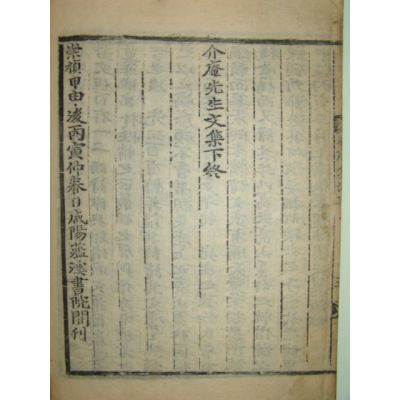 介庵先生文集下終
崇禎甲申後丙寅仲春日咸陽灆溪書院開刊